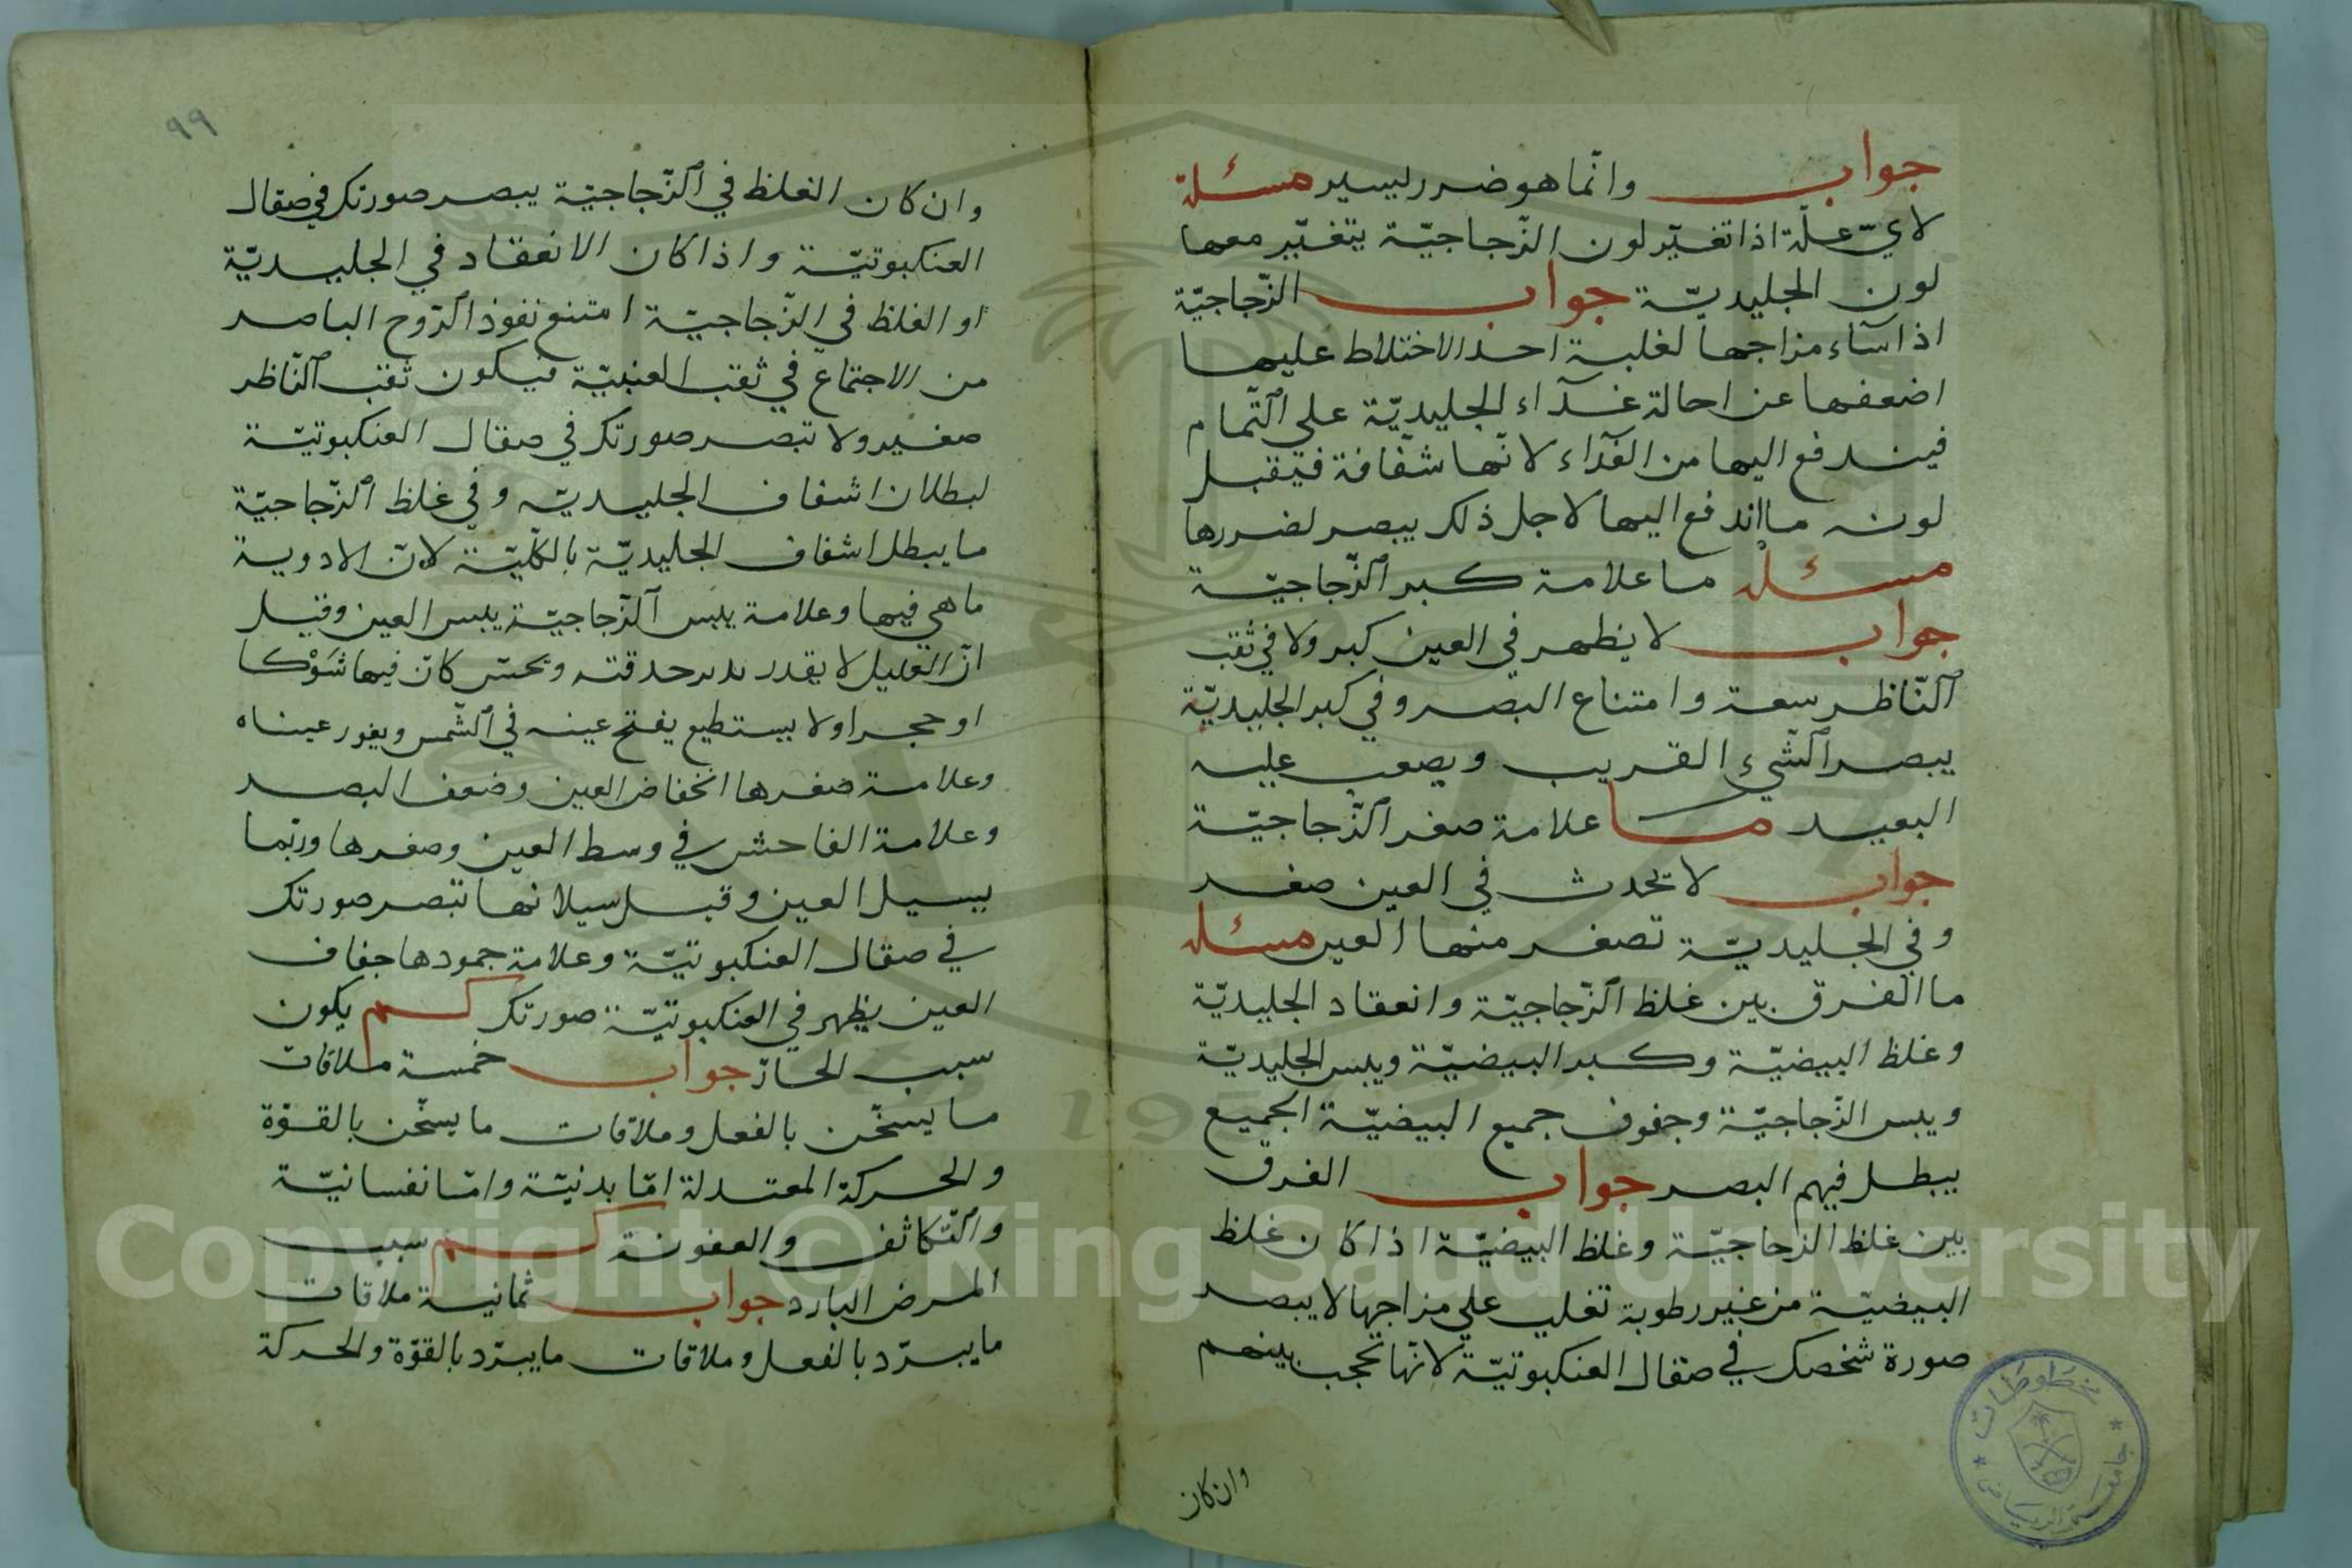 جواب وانّما هو ضرر ليسير مسئلة
لايّ علّة اذا تغيّر لون الزّجاجيّة يتغيّر معها
لون الجليديّة جواب الزّجاجيّة
اذا سآء مزاجها لغلبة احد الاختلاط عليها
اضعفها عن احالة غذآء الجليديّة على التّمام
فيندفع اليها من الغذآء لانّها شفّافة فيقبل
لونه ما اندفع اليها لاجل ذلك يبصر لضررها
مسئلة ما علامة كبر الزّجاجيّة
جواب لا يظهر في العين كبر ولا في ثقب
النّاظر سعة وامتناع البصر وفي كبر الجليديّة
يبصر الشّيء القريب ويصعب عليه
البعيد مسا علامة صغر الزّجاجيّة
جواب لا يحدث في العين صغر
وفي الجليديّة تصغر منها العين مسئلة
ما الفرق بين غلظ الزّجاجيّة وانعقاد الجليديّة
وغلظ البيضيّة وكبر البيضيّة ويبس الجليديّة
ويبس الزّجاجيّة وجفوف جميع البيضيّة الجميع
يبطل فيهم البصر جواب الفرق
بين غلظ الزجاجيّة وغلظ البيضيّة اذا كان غلظ
البيضيّة من غير رطوبة تغلب على مزاجها لا يبصر
صورة شخصك في صقال العنكبوتيّة لانّها تحجب بينهم
وان كان
٩٩
وان كان الغلظ في الزّجاجيّة يبصر صورتك في صقال
العنكبوتيّة واذا كان الانعقاد في الجليديّة
او الغلظ في الزّجاجيّة امتنع نفوذ الرّوح الباصر
من الاجتماع في ثقب العنبيّة فيكون ثقب النّاظر
صغير ولا تبصر صورتك في صقال العنكبوتيّة
لبطلان اشفاف الجليديّه وفي غلظ الزّجاجيّة
ما يبطل اشفاف الجليديّة بالكلّيّة لانّ الادوية
ما هي فيها وعلامة يبس الزّجاجيّة يبس العين وقيل
انّ العليل لا يقدر يدير حدقته ويحسّ كانّ فيها شَوْكا
او حجرا ولا يستطيع يفتح عينه في الشّمس ويغور عيناه
وعلامة صغرها انخفاض العين وضعف البصر
وعلامة الفاحش في وسط العين وصغرها وربّما
يسيل العين وقبل سيلانها تبصر صورتك
في صقال العنكبوتيّة وعلامة جمودها جفاف
العين يظهر في العنكبوتيّة صورتك كم يكون
سبب الحارّ جواب خمسة ملاقات
ما يسخّن بالفعل وملاقات ما يسخّن بالقوّة
والحركة المعتدلة امّا بدنيّة وامّا نفسانيّة
والتّكاثف والعفونة كم سبب
المرض البارد جواب ثمانية ملاقات
ما يبرّد بالفعل وملاقات ما يبرّد بالقوّة والحركة
مخطوطات
جامعة الرياض
Copyright © King Saud University
195